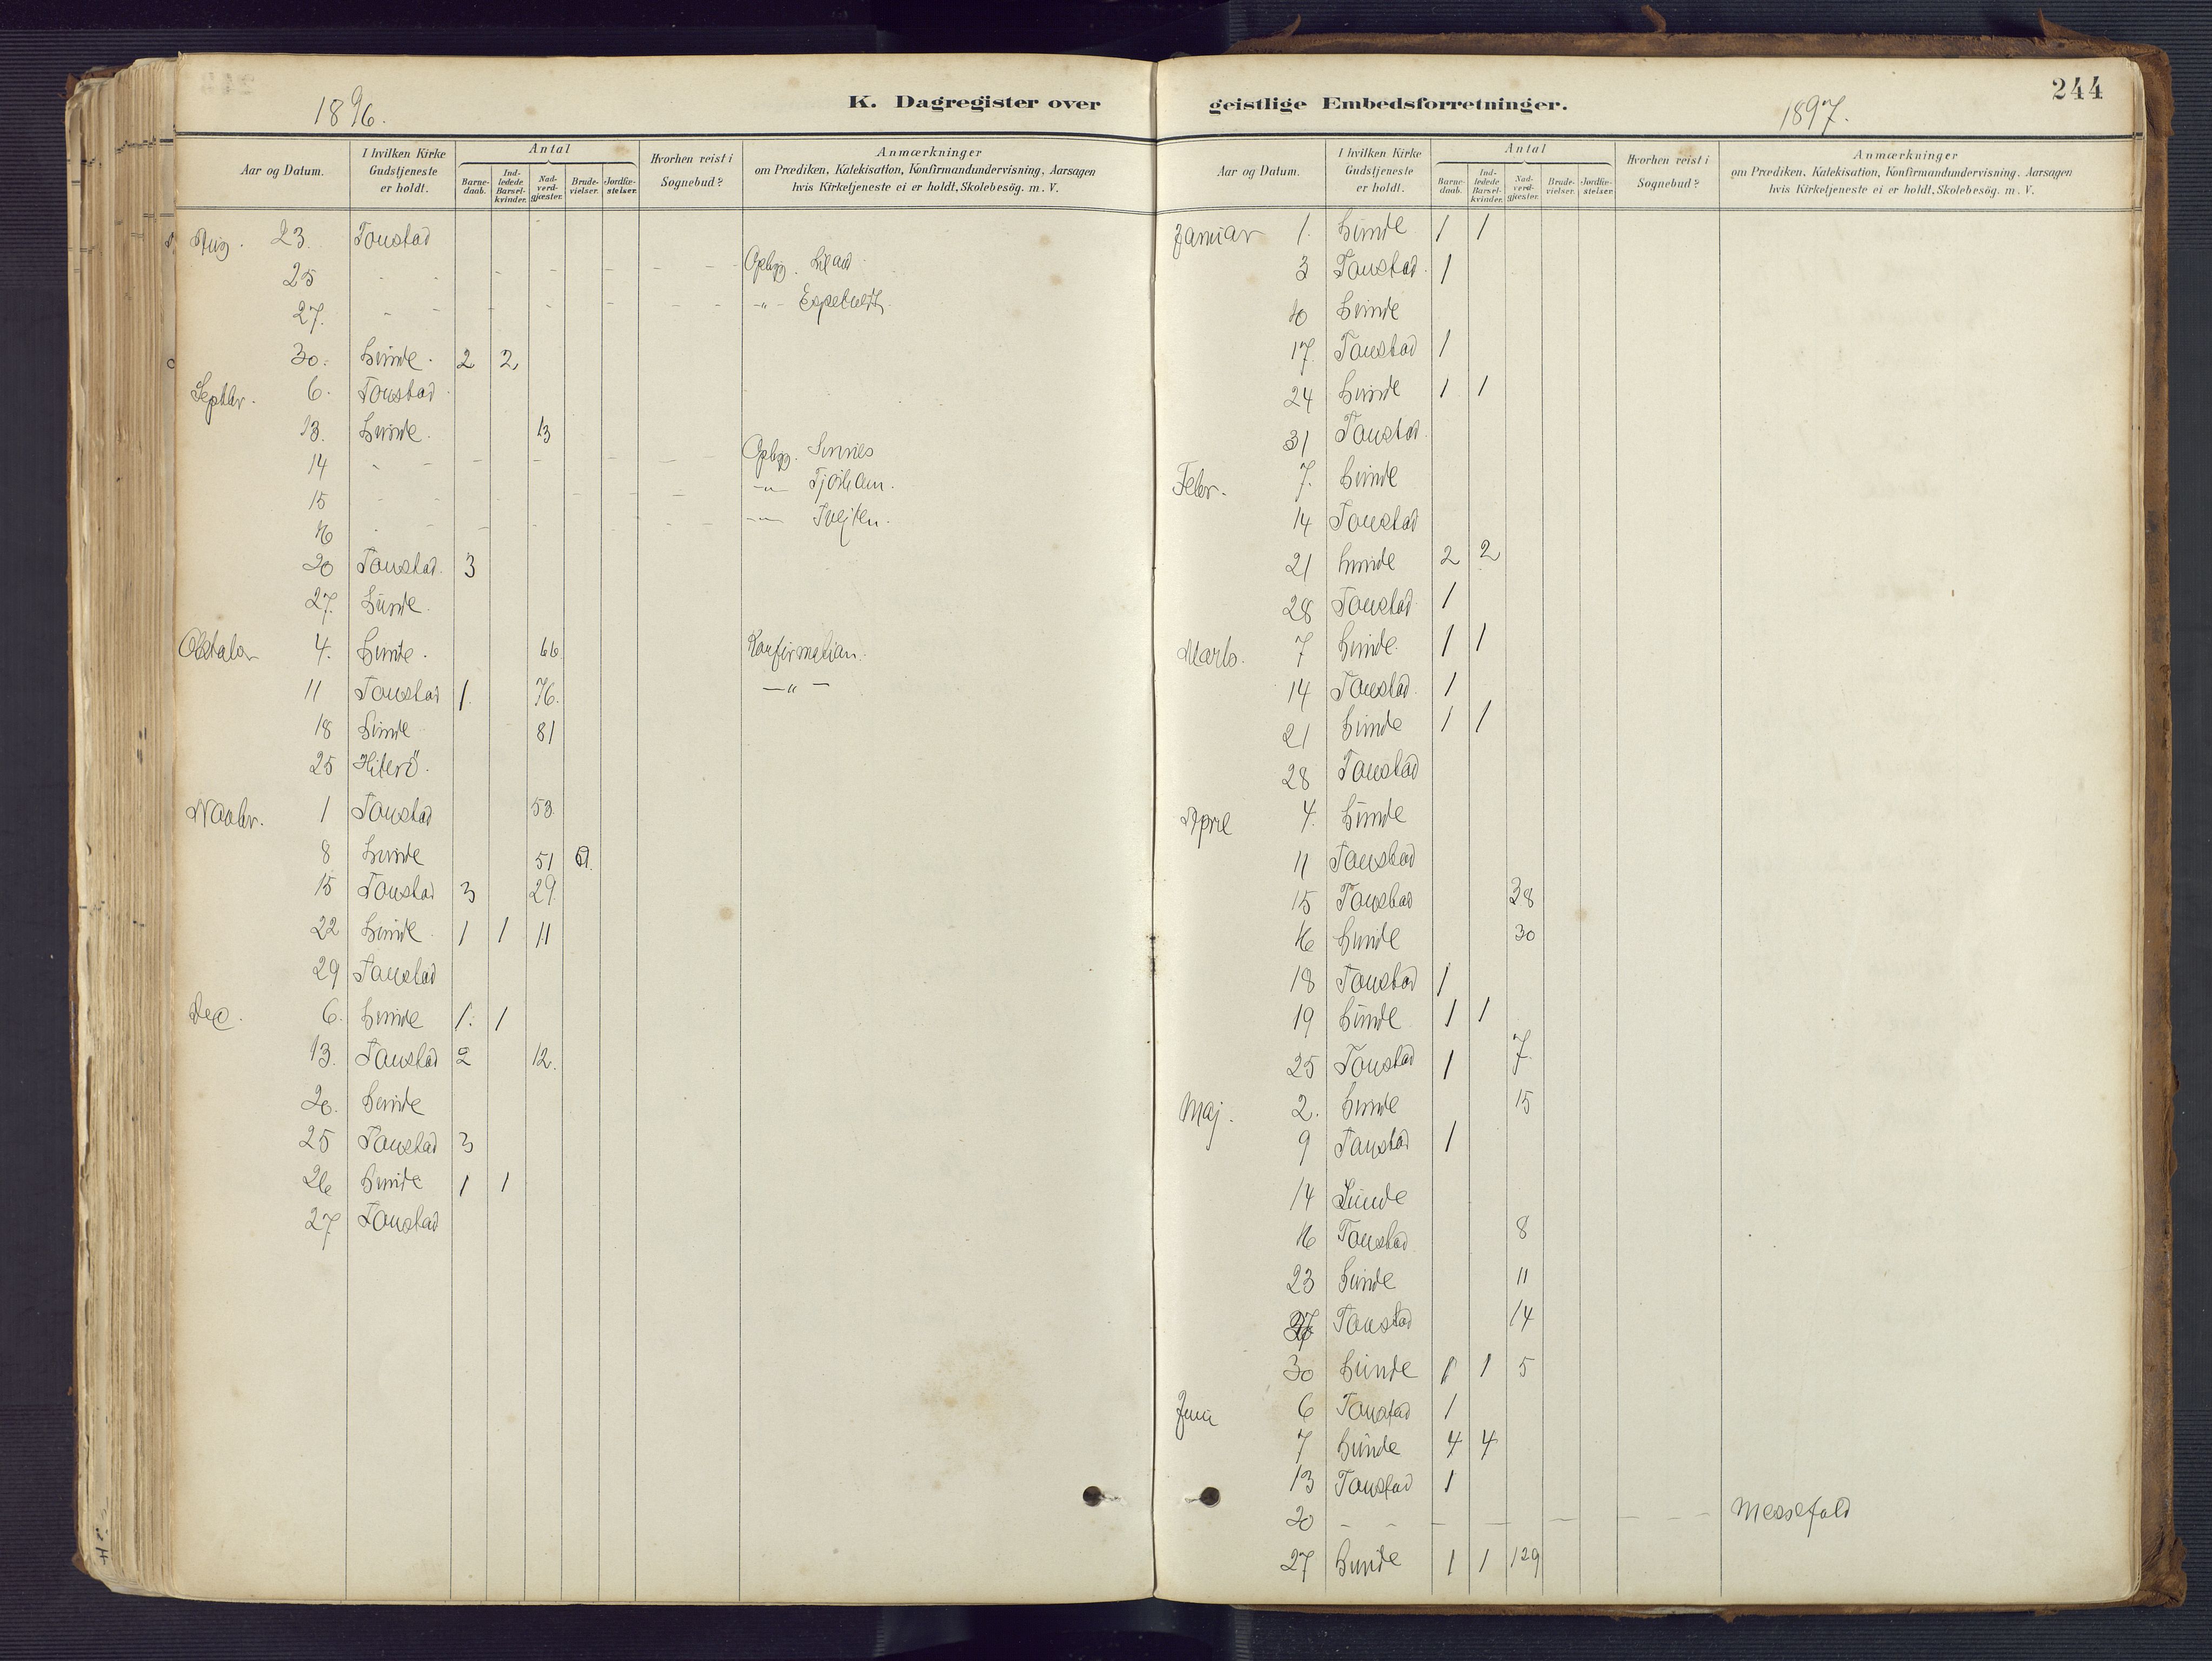 244
K. Dagregister over geistlige Embedsforretninger.
1896.
Aar og Datum. I hvilken Kirke Gudstjeneste er holdt. Antal Barnedaab. Indledede Barselkvinder. Nadverdgjæster. Brudevielser. Jordfæstelser. Hvorhen reist i Sognebud? Anmærkninger om Prædiken, Katekisation, Konfirmandundervisning, Aarsagen hvis Kirketjeneste ei er holdt, Skolebesøg. m. V.
Aug. 23. Tonstad
25 - - - - - - - - Opbyg.
27. - - - - - - - - -"-
30. Lunde. 2 2
Septbr. 6. Tonstad
13. Lunde. 13
14 - - - - - - - - Opbyg. Sinnes
15 - - - - - - -"- Tjörham.
16 - - - - - - - -"- Tveiten.
20 Tonstad. 3
27. Lunde.
Oktober 4. Lunde. 66 Konfirmation.
11 Tonstad 1. 76. -"-
18 Lunde 81
25 Hiterö.
Novbr. 1 Tonstad 53.
8 Lunde 51
15 Tonstad 3 29
22 Lunde 1 1 11
29 Tonstad
Dec. 6. Lunde 1. 1
13. Tonstad 2 12.
20. Lunde
25 Tonstad 3
26 Lunde 1 1
27 Tonstad
1897.
Aar og Datum. I hvilken Kirke Gudstjeneste er holdt. Antal Barnedaab. Indledede Barselkvinder. Nadverdgjæster. Brudevielser. Jordfæstelser. Hvorhen reist i Sognebud? Anmærkninger om Prædiken, Katekisation, Konfirmandundervisning, Aarsagen hvis Kirketjeneste ei er holdt, Skolebesøg. m. V.
Januar 1. Lunde 1 1
3 Tonstad. 1
10 Lunde
17. Tonstad 1
24 Lunde 1 1
31 Tonstad.
Febr. 7. Lunde
14 Tonstad
21 Lunde 2 2
28 Tonstad 1
Marts. 7 Lunde. 1 1
14 Tonstad. 1
21 Lunde 1 1
28 Tonstad
April 4. Lunde
11 Tonstad
15 Tonstad 38
16 Lunde 30
18 Tonstad 1
19 Lunde 1 1
25 Tonstad 1 7.
Maj. 2. Lunde 15
9 Tonstad 1
14 Lunde
16 Tonstad 8
23 Lunde 11
27 Tonstad 14
30 Lunde 1 1 5
Juni 6 Tonstad 1
7 Lunde 4 4
13 Tonstad 1
20 - - - - - - - - Messefald
27 Lunde 1 1 129